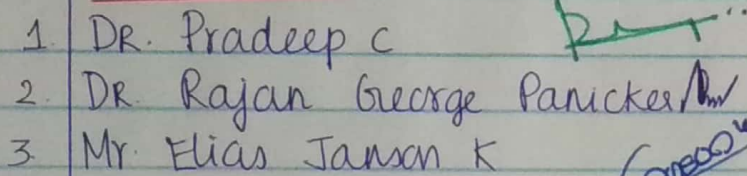 1. DR. Pradeep C
2. DR. Rajan George Panicker
3. Mr. Elias Janson K